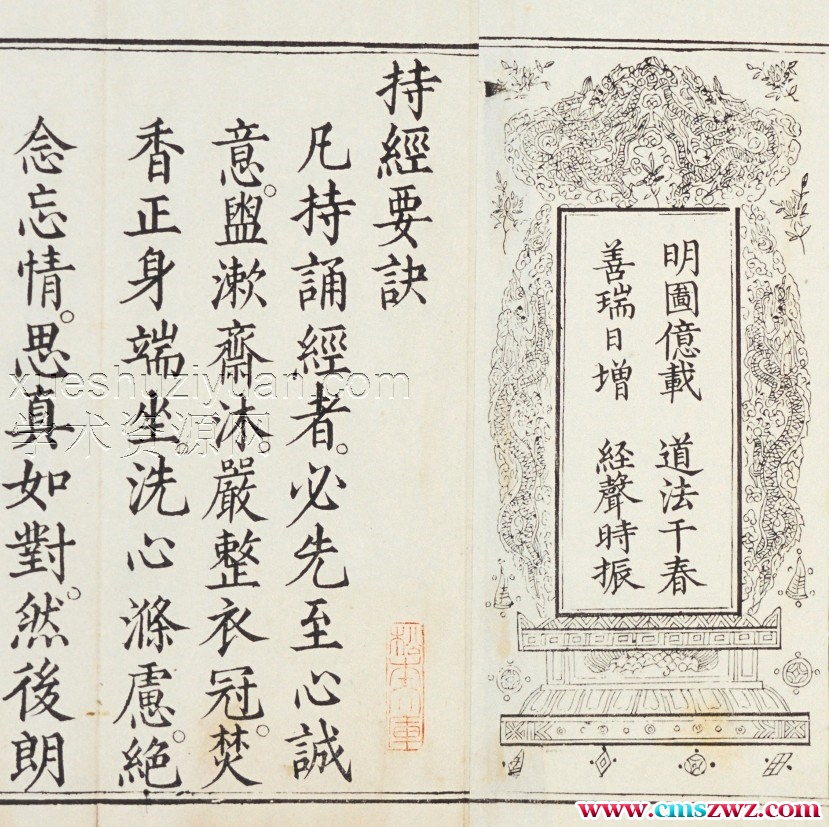 明圖億載 道法千春
善瑞日增 経聲時振
持經要訣
凡持誦經者。必先至心誠
意。盥漱齋沐。嚴整衣冠。焚
香正身端坐洗心滌慮。絕
念忘情。思真如對。然後朗
xueshuziyuan.com
学术资源网
www.cmszwz.com